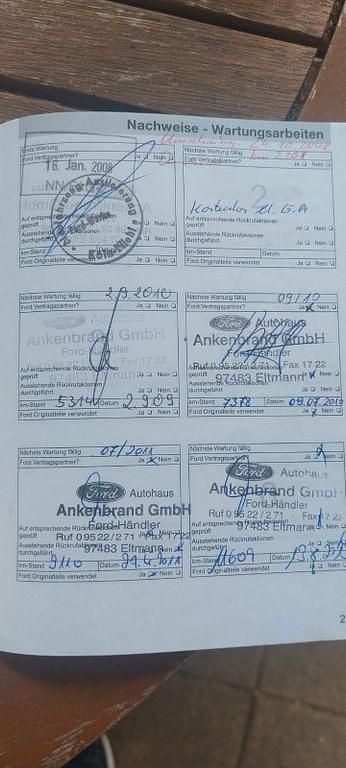 Nachweise - Wartungsarbeiten
Erste Wartung
Ford Vertragspartner? Ja Nein
16. Jan. 2008
Auf entsprechende Rückrufaktionen geprüft Ja Nein
Ausstehende Rückrufaktionen durchgeführt Ja Nein
km-Stand Datum
Ford Originalteile verwendet Ja Nein
Nächste Wartung fällig
Ford Vertragspartner? Ja Nein
Auf entsprechende Rückrufaktionen geprüft Ja Nein
Ausstehende Rückrufaktionen durchgeführt Ja Nein
km-Stand Datum
Ford Originalteile verwendet Ja Nein
Nächste Wartung fällig 2.9.2010
Ford Vertragspartner? Ja Nein
Ford Autohaus
Ankenbrand GmbH
Ford-Händler
97483 Eltmann
Auf entsprechende Rückrufaktionen geprüft Ja Nein
Ausstehende Rückrufaktionen durchgeführt Ja Nein
km-Stand 5314 Datum 2.9.09
Ford Originalteile verwendet Ja Nein
Nächste Wartung fällig 09/10
Ford Vertragspartner? Ja Nein
Ford Autohaus
Ankenbrand GmbH
Ford-Händler
Fax 17 22
97483 Eltmann
Ausstehende Rückrufaktionen durchgeführt Ja Nein
km-Stand 7378 Datum 09.07.2010
Ford Originalteile verwendet Ja Nein
Nächste Wartung fällig 07/2011
Ford Vertragspartner? Ja Nein
Ford Autohaus
Ankenbrand GmbH
Ford-Händler
Ruf 0 95 22 / 2 71 - Fax 17 22
97483 Eltmann
Auf entsprechende Rückrufaktionen geprüft Ja Nein
Ausstehende Rückrufaktionen durchgeführt Ja Nein
km-Stand 9110 Datum
Ford Originalteile verwendet Ja Nein
Nächste Wartung fällig
Ford Vertragspartner? Ja Nein
Ford Autohaus
Ankenbrand GmbH
Ford-Händler
Ruf 0 95 22 / 2 71 - Fax 17 22
97483 Eltmann
Auf entsprechende Rückrufaktionen geprüft Ja Nein
Ausstehende Rückrufaktionen durchgeführt Ja Nein
km-Stand 11609 Datum
Ford Originalteile verwendet Ja Nein
2